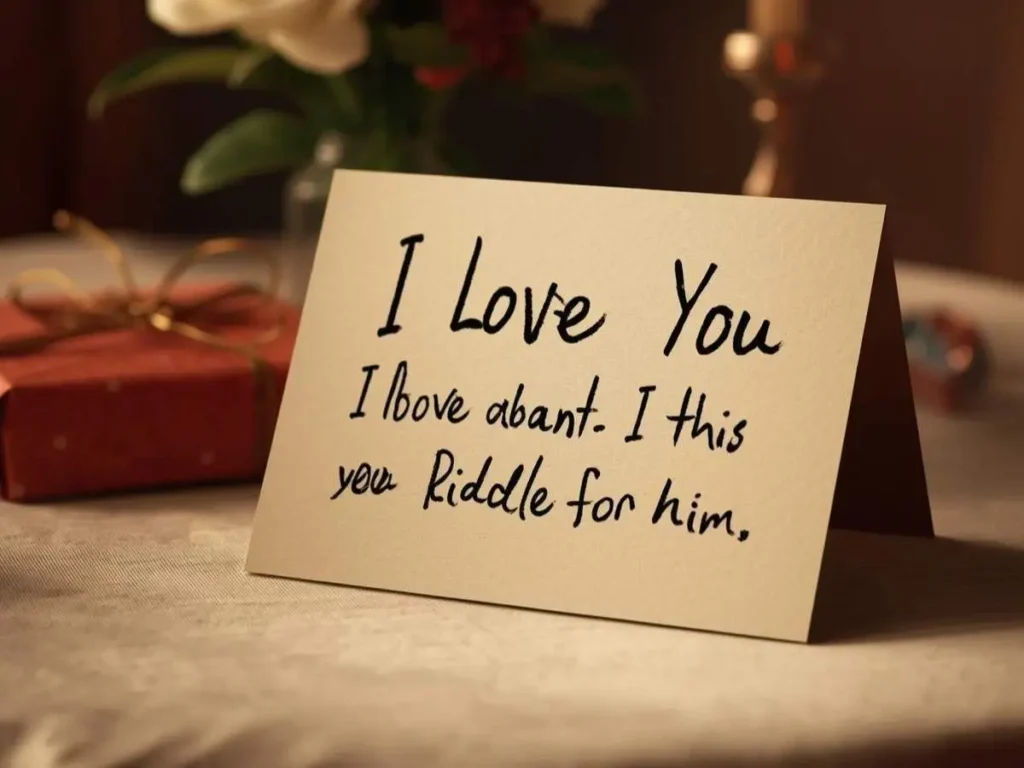 I Love You
I lbove abant. I this
you Riddle for him.